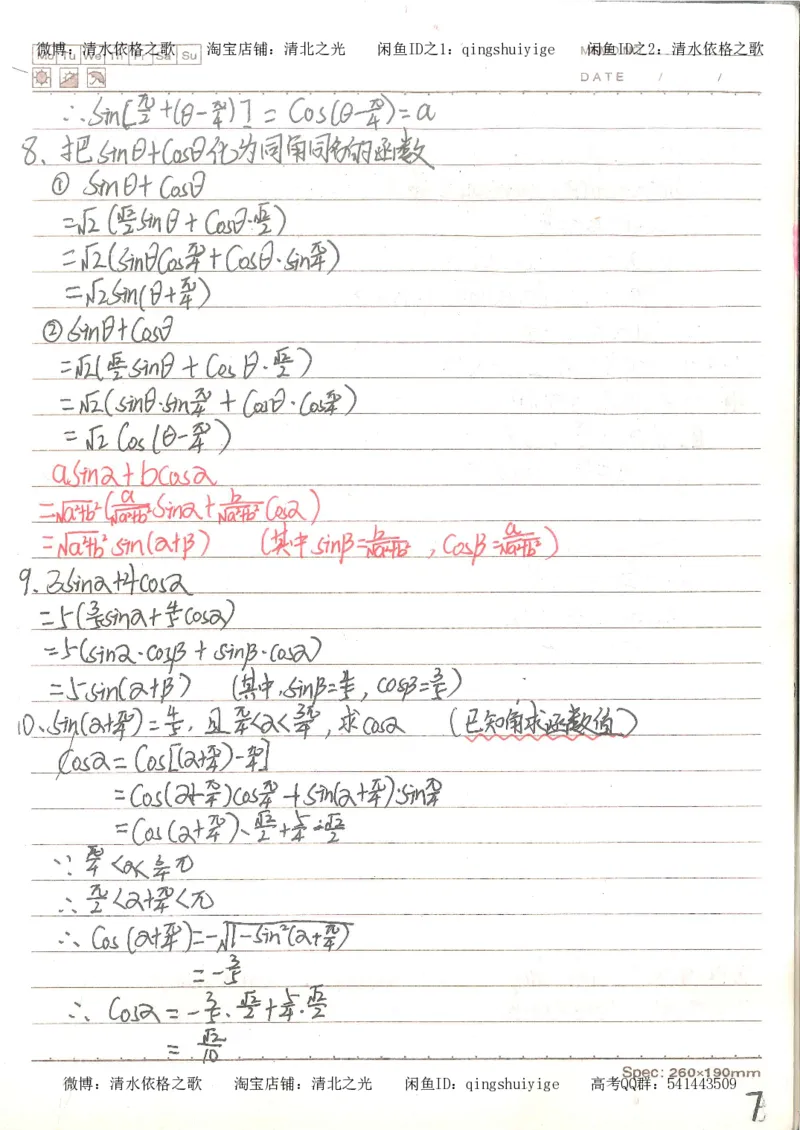 微博：清水依格之歌 淘宝店铺：清北之光 闲鱼ID之1：qingshuiyige 闲鱼ID之2：清水依格之歌
Mo Tu We Th Fr Sa Su
DATE / /
∴ Sin[π/2+(θ-π/4)] = Cos(θ-π/4)=a
8、把 Sinθ+Cosθ化为同角同名的函数
① Sinθ+Cosθ
=√2(√2/2 Sinθ+Cosθ·√2/2)
=√2(SinθCosπ/4+Cosθ·Sinπ/4)
=√2Sin(θ+π/4)
② Sinθ+Cosθ
=√2(√2/2 Sinθ+Cosθ·√2/2)
=√2(Sinθ·Sinπ/4+Cosθ·Cosπ/4)
=√2 Cos(θ-π/4)
aSinα+bCosα
=√a²+b²(a/√a²+b² Sinα+b/√a²+b² Cosα)
=√a²+b² sin(α+β) (其中 sinβ=b/√a²+b², Cosβ=a/√a²+b²)
9、3Sinα+4Cosα
=5(3/5sinα+4/5cosα)
=5(sinα·cosβ+sinβ·cosα)
=5sin(α+β) (其中, sinβ=4/5, cosβ=3/5)
10、Sin(α+π/4)=4/5, 且π/4<α<3π/4, 求cosα (已知角求函数值)
Cosα=Cos[(α+π/4)-π/4]
=Cos(α+π/4)cosπ/4+Sin(α+π/4)·Sinπ/4
=Cos(α+π/4)·√2/2+5/4·√2/2
∵ π/4<α<3/4π
∴ π/2<α+π/4<π
∴ Cos(α+π/4)=-√1-Sin²(α+π/4)
=-3/5
∴ Cosα=-3/5·√2/2+5/4·√2/2
=√2/10
Spec: 260×190mm
微博：清水依格之歌 淘宝店铺：清北之光 闲鱼ID：qingshuiyige 高考QQ群：541443509
7